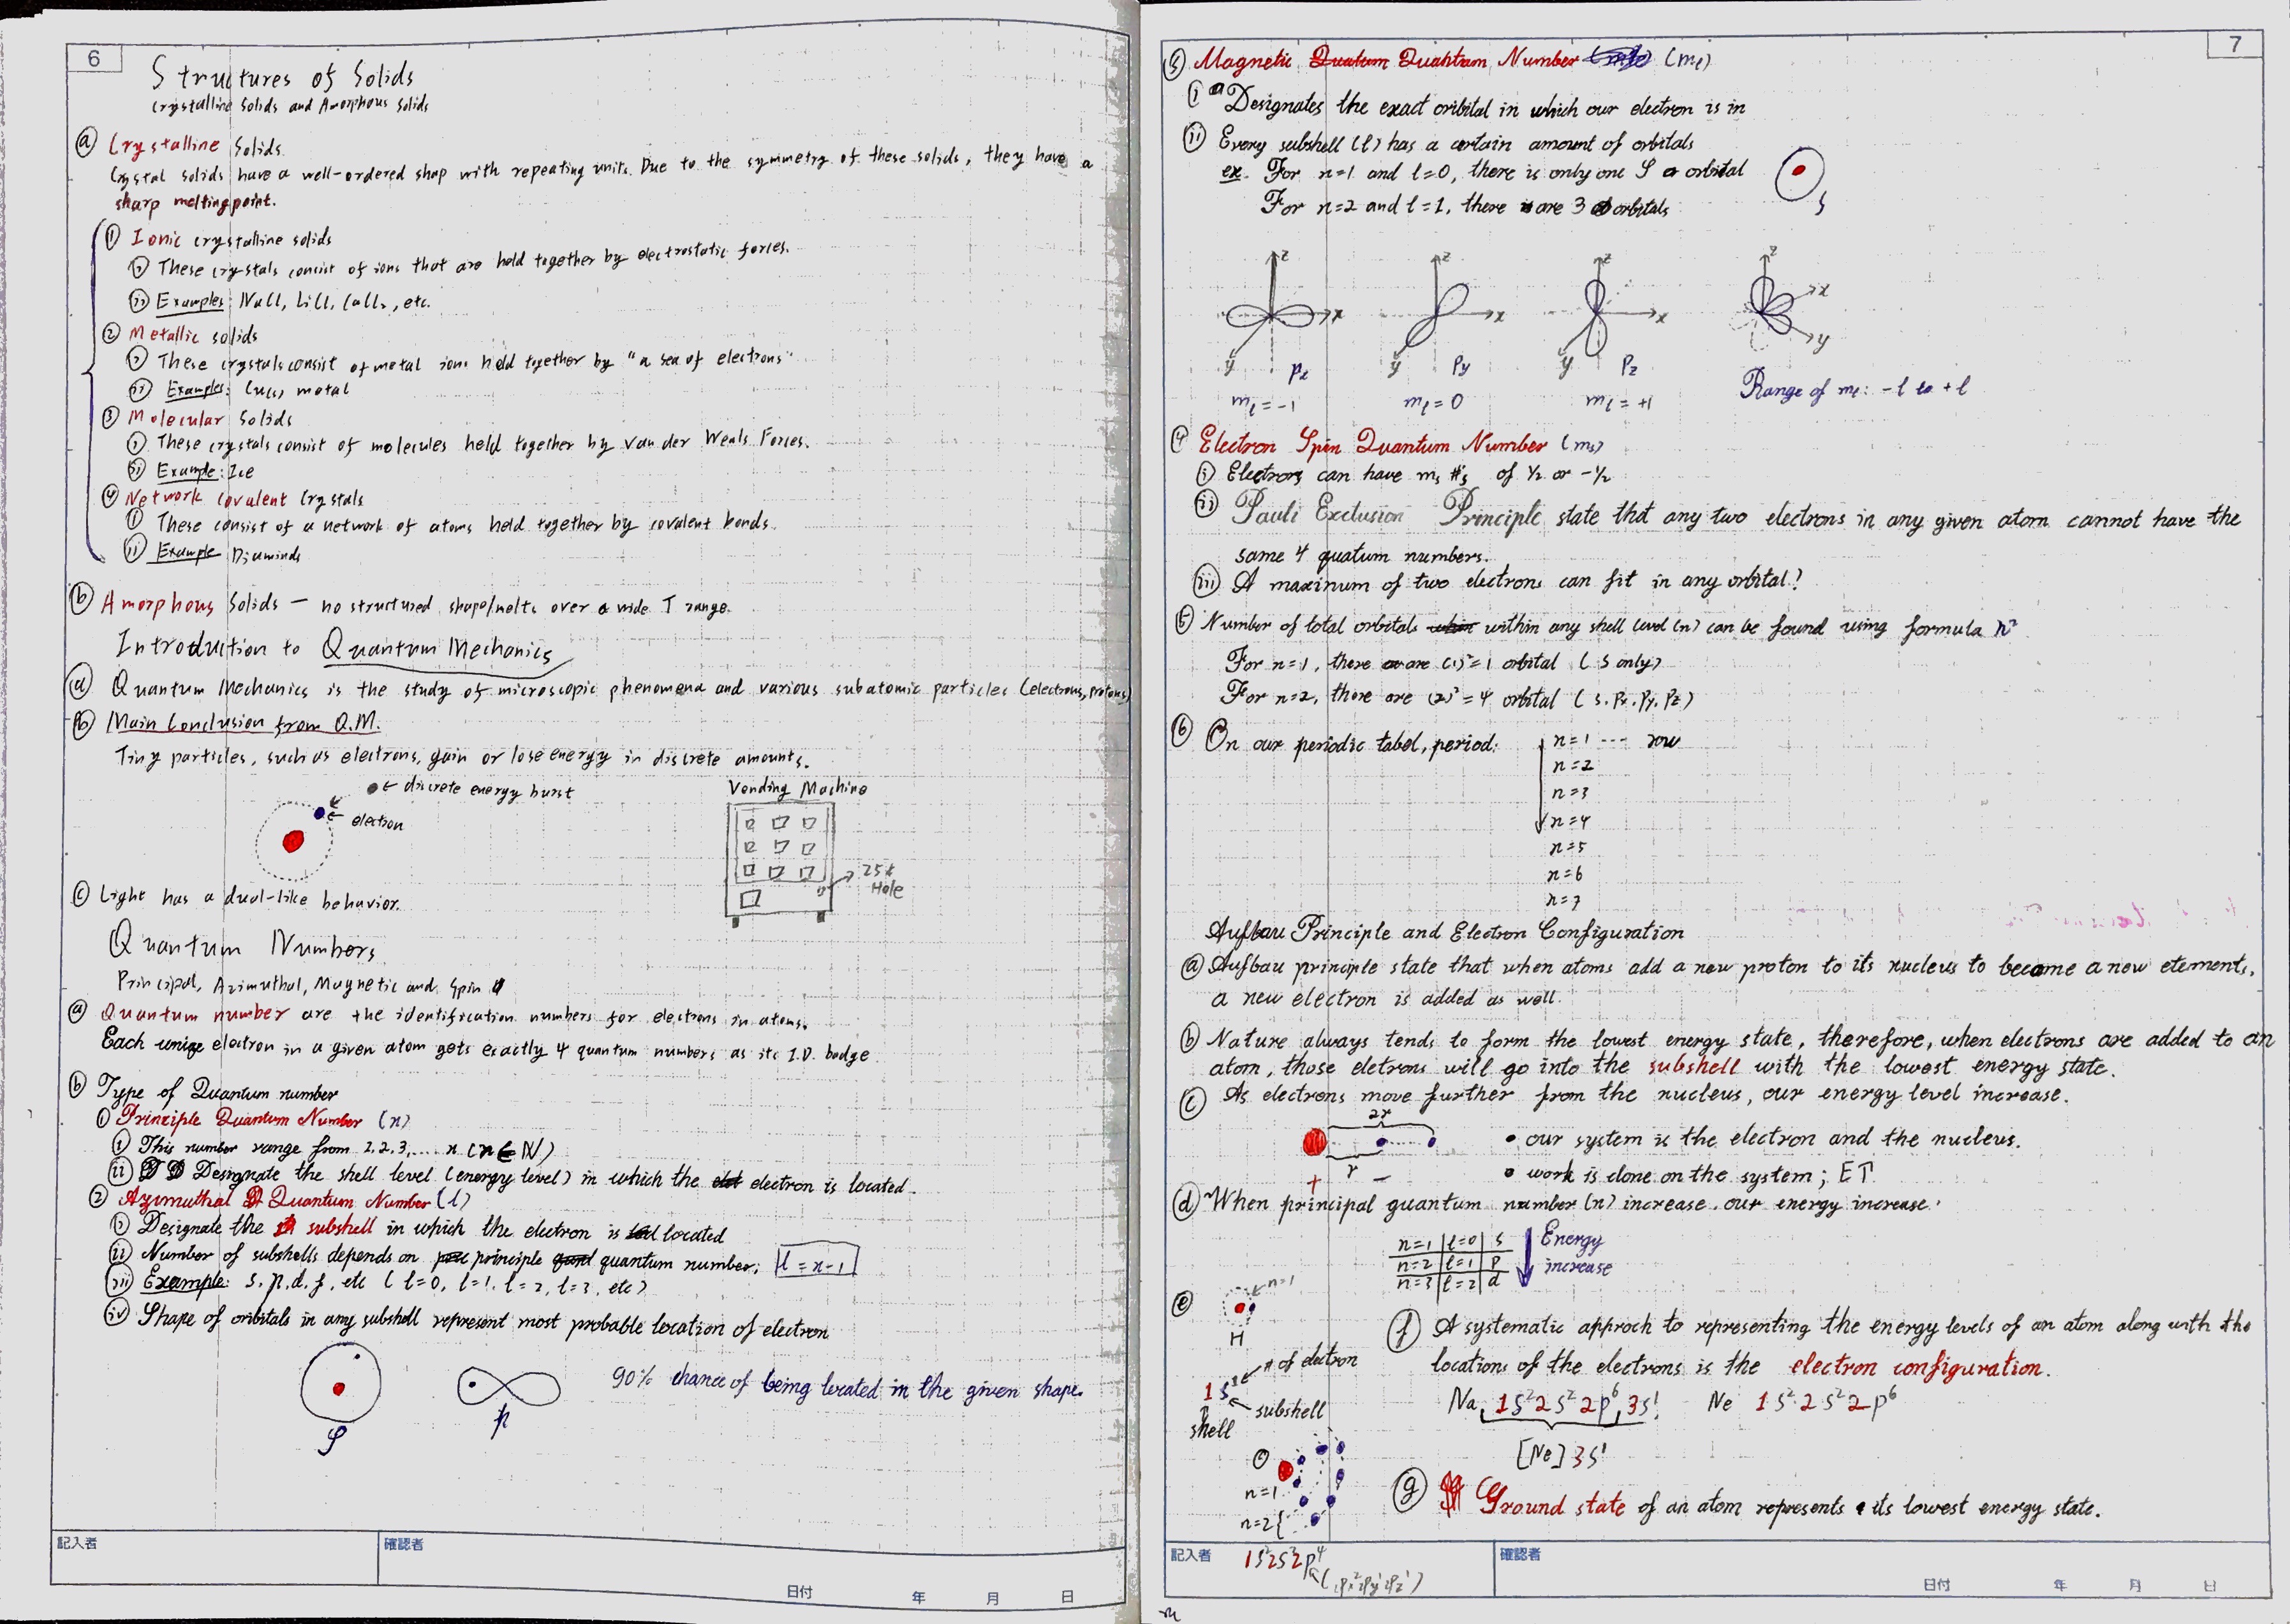 6
Structures of Solids
Crystalline Solids and Amorphous Solids
ⓐ Crystalline Solids
Crystal solids have a well-ordered shap with repeating units. Due to the symmetry of these solids, they have a
sharp melting point.
① Ionic crystalline solids
ⓘ These crystals consist of ions that are held together by electrostatic forces.
ⓘⓘ Examples: NaCl, LiCl, CaCl₂, etc.
② Metallic solids
ⓘ These crystals consist of metal ions held together by "a sea of electrons"
ⓘⓘ Examples: Cu(s) metal
③ Molecular Solids
ⓘ These crystals consist of molecules held together by Van der Weals Forces.
ⓘⓘ Example: Ice
④ Network Covalent Crystals
ⓘ These consist of a network of atoms held together by covalent bonds.
ⓘⓘ Example Diaminds
ⓑ Amorphous Solids — no structured shape/melts over a wide T range.
Introduction to Quantum Mechanics
ⓐ Quantum Mechanics is the study of microscopic phenomena and various subatomic particles (electrons, protons)
ⓑ Main Conclusion from Q.M.
Tiny particles, such as electrons, gain or lose energy in discrete amounts.
← discrete energy burst
← electron
Vending Machine
25¢
Hole
ⓒ Light has a dual-like behavior.
Quantum Numbers
Principal, Azimuthal, Magnetic and Spin
ⓐ Quantum number are the identification numbers for electrons in atoms.
Each uniqe electron in a given atom gets exactly 4 quantum numbers as its I.D. badge
ⓑ Type of Quantum number
① Principle Quantum Number (n)
ⓘ This number range from 1,2,3,.... n (n ∈ N)
ⓘⓘ Designate the shell level (energy level) in which the electron is located.
② Azimuthal Quantum Number (l)
ⓘ Designate the subshell in which the electron is located
ⓘⓘ Number of subshells depends on principle quantum number: l = n-1
ⓘⓘⓘ Example: s, p, d, f, etc (l=0, l=1, l=2, l=3, etc)
ⓘⓥ Shape of oribitals in any subshell represent most probable location of electron
S
p
90% chance of being located in the given shape.
記入者
確認者
日付 年 月 日
7
③ Magnetic Quantum Number (mₗ)
ⓘ Designates the exact oribital in which our electron is in
ⓘⓘ Every subshell (l) has a certain amount of orbitals
ex. For n=1 and l=0, there is only one S orbital
For n=2 and l=1, there are 3 orbitals
S
z z z z
x x x x
y y y y
Px Py Pz
mₗ=-1 mₗ=0 mₗ=+1
Range of mₗ: -l to +l
④ Electron Spin Quantum Number (ms)
ⓘ Electrons can have ms #'s of 1/2 or -1/2
ⓘⓘ Pauli Exclusion Principle state that any two electrons in any given atom cannot have the
same 4 quatum numbers.
ⓘⓘⓘ A maximum of two electrons can fit in any orbital!
⑤ Number of total orbitals within any shell level (n) can be found using formula n²
For n=1, there are (1)²=1 orbital (S only)
For n=2, there are (2)²=4 orbital (s, Px, Py, Pz)
⑥ On our periodic tabel, period: n=1 ---- row
n=2
n=3
n=4
n=5
n=6
n=7
Aufbau Principle and Electron Configuration
ⓐ Aufbau principle state that when atoms add a new proton to its nucleus to become a new etements,
a new electron is added as well.
ⓑ Nature always tends to form the lowest energy state, therefore, when electrons are added to an
atom, those eletrons will go into the subshell with the lowest energy state.
ⓒ As electrons move further from the nucleus, our energy level increase.
2r
r
+ −
• our system is the electron and the nucleus.
• work is done on the system; E↑
ⓓ When principal quantum number (n) increase, our energy increase.
n=1 l=0 s
n=2 l=1 p
n=3 l=2 d
Energy
increase
ⓔ
n=1
H
# of electron
1s¹
subshell
shell
ⓕ A systematic approch to representing the energy levels of an atom along with the
locations of the electrons is the electron configuration.
Na 1s²2s²2p⁶3s¹ Ne 1s²2s²2p⁶
[Ne]3s¹
n=1
n=2
ⓖ Ground state of an atom represents its lowest energy state.
記入者 1s²2s²2p⁴
(2Px²2Py¹2Pz¹)
確認者
日付 年 月 日